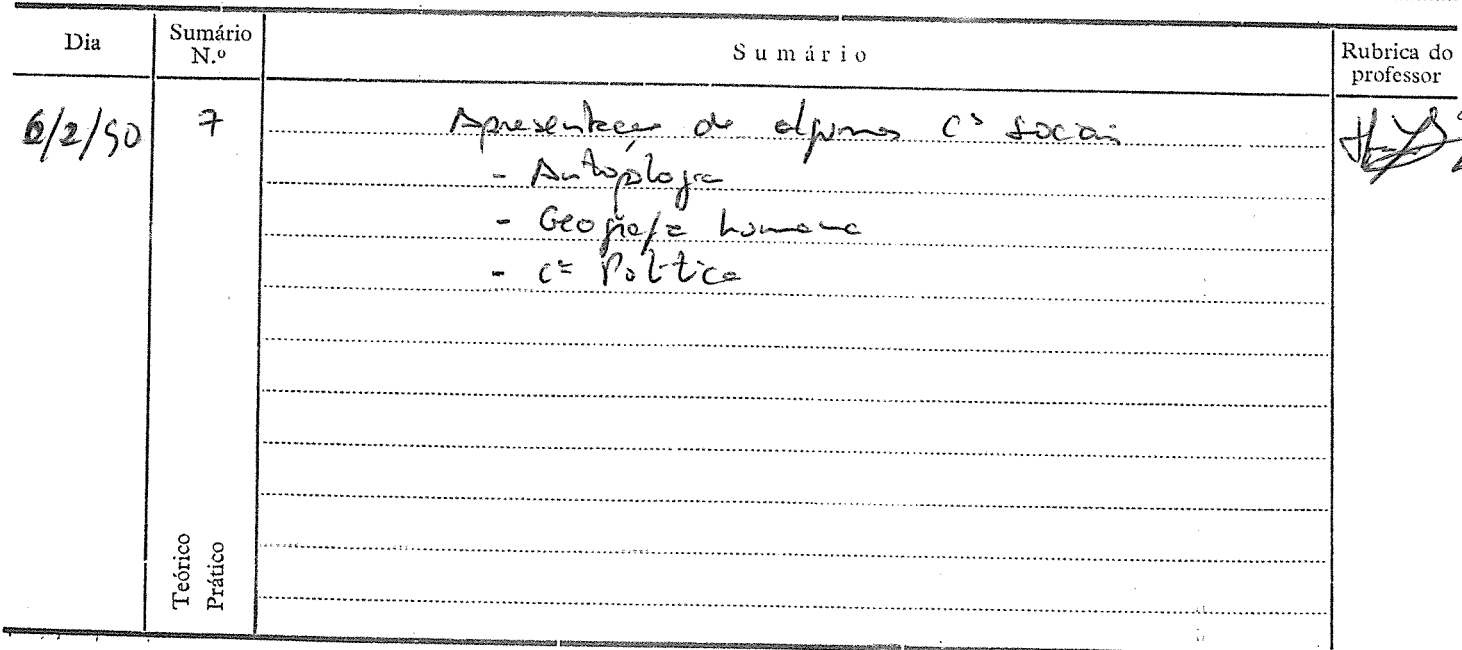 Dia Sumário N.º Sumário Rubrica do professor
6/2/90 7 Apresentação de algumas Cªs Sociais
- Antropologia
- Geografia humana
- Cª Política
Teórico
Prático